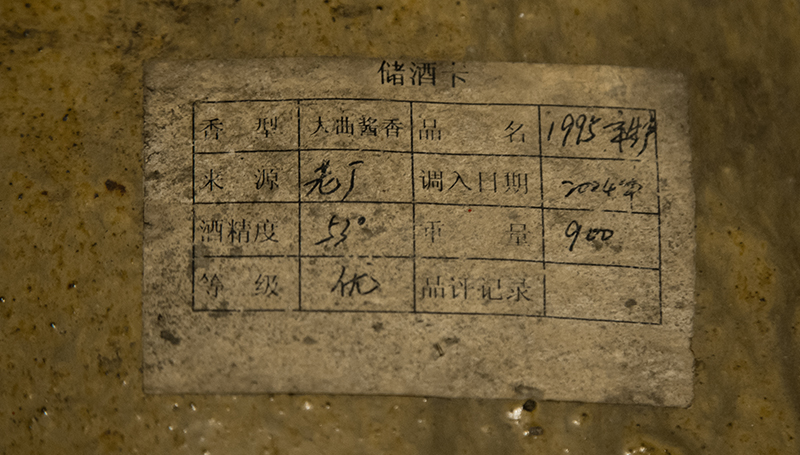 储酒卡
香型 大曲酱香 品名 1995年生产
来源 老厂 调入日期 2024年
酒精度 53° 重量 900
等级 优 品评记录